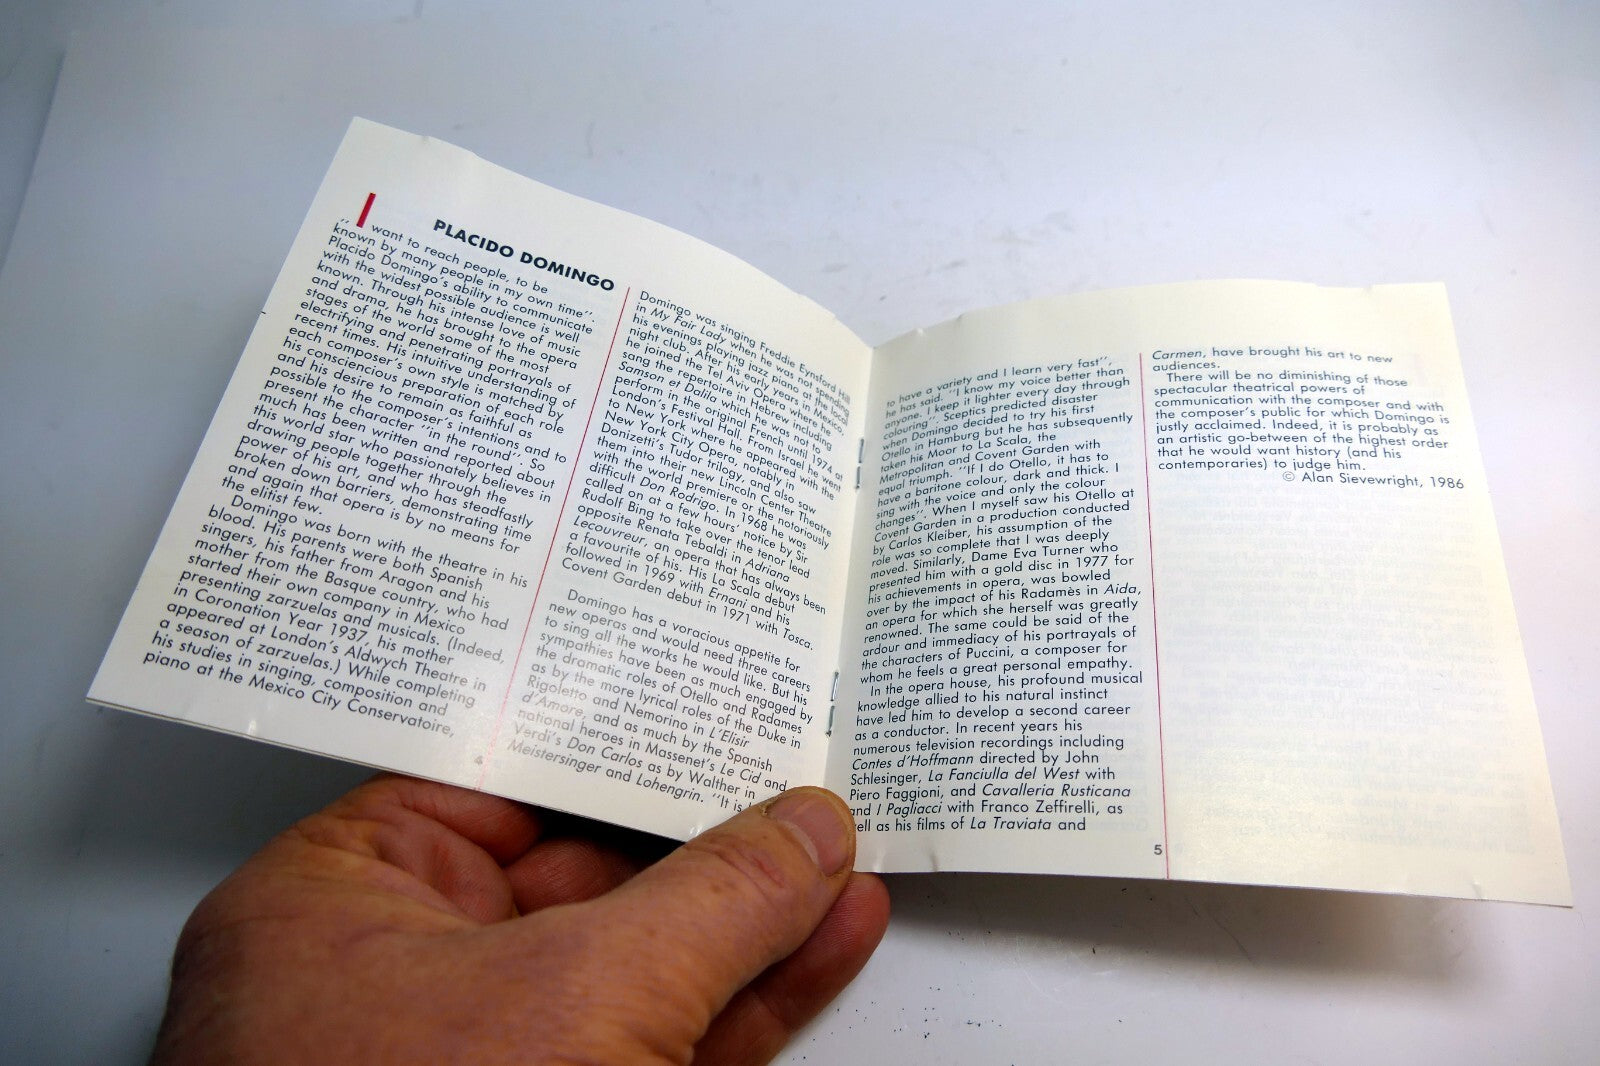 PLACIDO DOMINGO
"I want to reach people, to be
known by many people in my own time".
Placido Domingo's ability to communicate
with the widest possible audience is well
known. Through his intense love of music
and drama, he has brought to the opera
stages of the world some of the most
electrifying and penetrating portrayals of
recent times. His intuitive understanding of
each composer's own style is matched by
his conscientious preparation of each role
and his desire to remain as faithful as
possible to the composer's intentions, and to
present the character "in the round". So
much has been written and reported about
this world star who passionately believes in
drawing people together through the
power of his art, and who has steadfastly
broken down barriers, demonstrating time
and again that opera is by no means for
the elitist few.
Domingo was born with the theatre in his
blood. His parents were both Spanish
singers, his father from Aragon and his
mother from the Basque country, who had
started their own company in Mexico
presenting zarzuelas and musicals. (Indeed,
in Coronation Year 1937, his mother
appeared at London's Aldwych Theatre in
a season of zarzuelas.) While completing
his studies in singing, composition and
piano at the Mexico City Conservatoire,
4
Domingo was singing Freddie Eynsford Hill
in My Fair Lady when he was not spending
his evenings playing jazz piano at the local
night club. After his early years in Mexico,
he joined the Tel Aviv Opera where he
sang the repertoire in Hebrew including
Samson et Dalila which he was not to
perform in the original French until 1974 at
London's Festival Hall. From Israel he went
to New York where he appeared with the
New York City Opera, notably in
Donizetti's Tudor trilogy, and also saw
them into their new Lincoln Center Theatre
with the world premiere of the notoriously
difficult Don Rodrigo. In 1968 he was
called on at a few hours' notice by Sir
Rudolf Bing to take over the tenor lead
opposite Renata Tebaldi in Adriana
Lecouvreur, an opera that has always been
a favourite of his. His La Scala debut
followed in 1969 with Ernani and his
Covent Garden debut in 1971 with Tosca.
Domingo has a voracious appetite for
new operas and would need three careers
to sing all the works he would like. But his
sympathies have been as much engaged by
the dramatic roles of Otello and Radames
as by the more lyrical roles of the Duke in
Rigoletto and Nemorino in L'Elisir
d'Amore, and as much by the Spanish
national heroes in Massenet's Le Cid and
Verdi's Don Carlos as by Walther in
Meistersinger and Lohengrin. "It is
to have a variety and I learn very fast",
he has said. "I know my voice better than
anyone. I keep it lighter every day through
colouring". Sceptics predicted disaster
when Domingo decided to try his first
Otello in Hamburg but he has subsequently
taken his Moor to La Scala, the
Metropolitan and Covent Garden with
equal triumph. "If I do Otello, it has to
have a baritone colour, dark and thick. I
sing with the voice and only the colour
changes". When I myself saw his Otello at
Covent Garden in a production conducted
by Carlos Kleiber, his assumption of the
role was so complete that I was deeply
moved. Similarly, Dame Eva Turner who
presented him with a gold disc in 1977 for
his achievements in opera, was bowled
over by the impact of his Radamès in Aida,
an opera for which she herself was greatly
renowned. The same could be said of the
ardour and immediacy of his portrayals of
the characters of Puccini, a composer for
whom he feels a great personal empathy.
In the opera house, his profound musical
knowledge allied to his natural instinct
have led him to develop a second career
as a conductor. In recent years his
numerous television recordings including
Contes d'Hoffmann directed by John
Schlesinger, La Fanciulla del West with
Piero Faggioni, and Cavalleria Rusticana
and I Pagliacci with Franco Zeffirelli, as
well as his films of La Traviata and
5
Carmen, have brought his art to new
audiences.
There will be no diminishing of those
spectacular theatrical powers of
communication with the composer and with
the composer's public for which Domingo is
justly acclaimed. Indeed, it is probably as
an artistic go-between of the highest order
that he would want history (and his
contemporaries) to judge him.
© Alan Sievewright, 1986